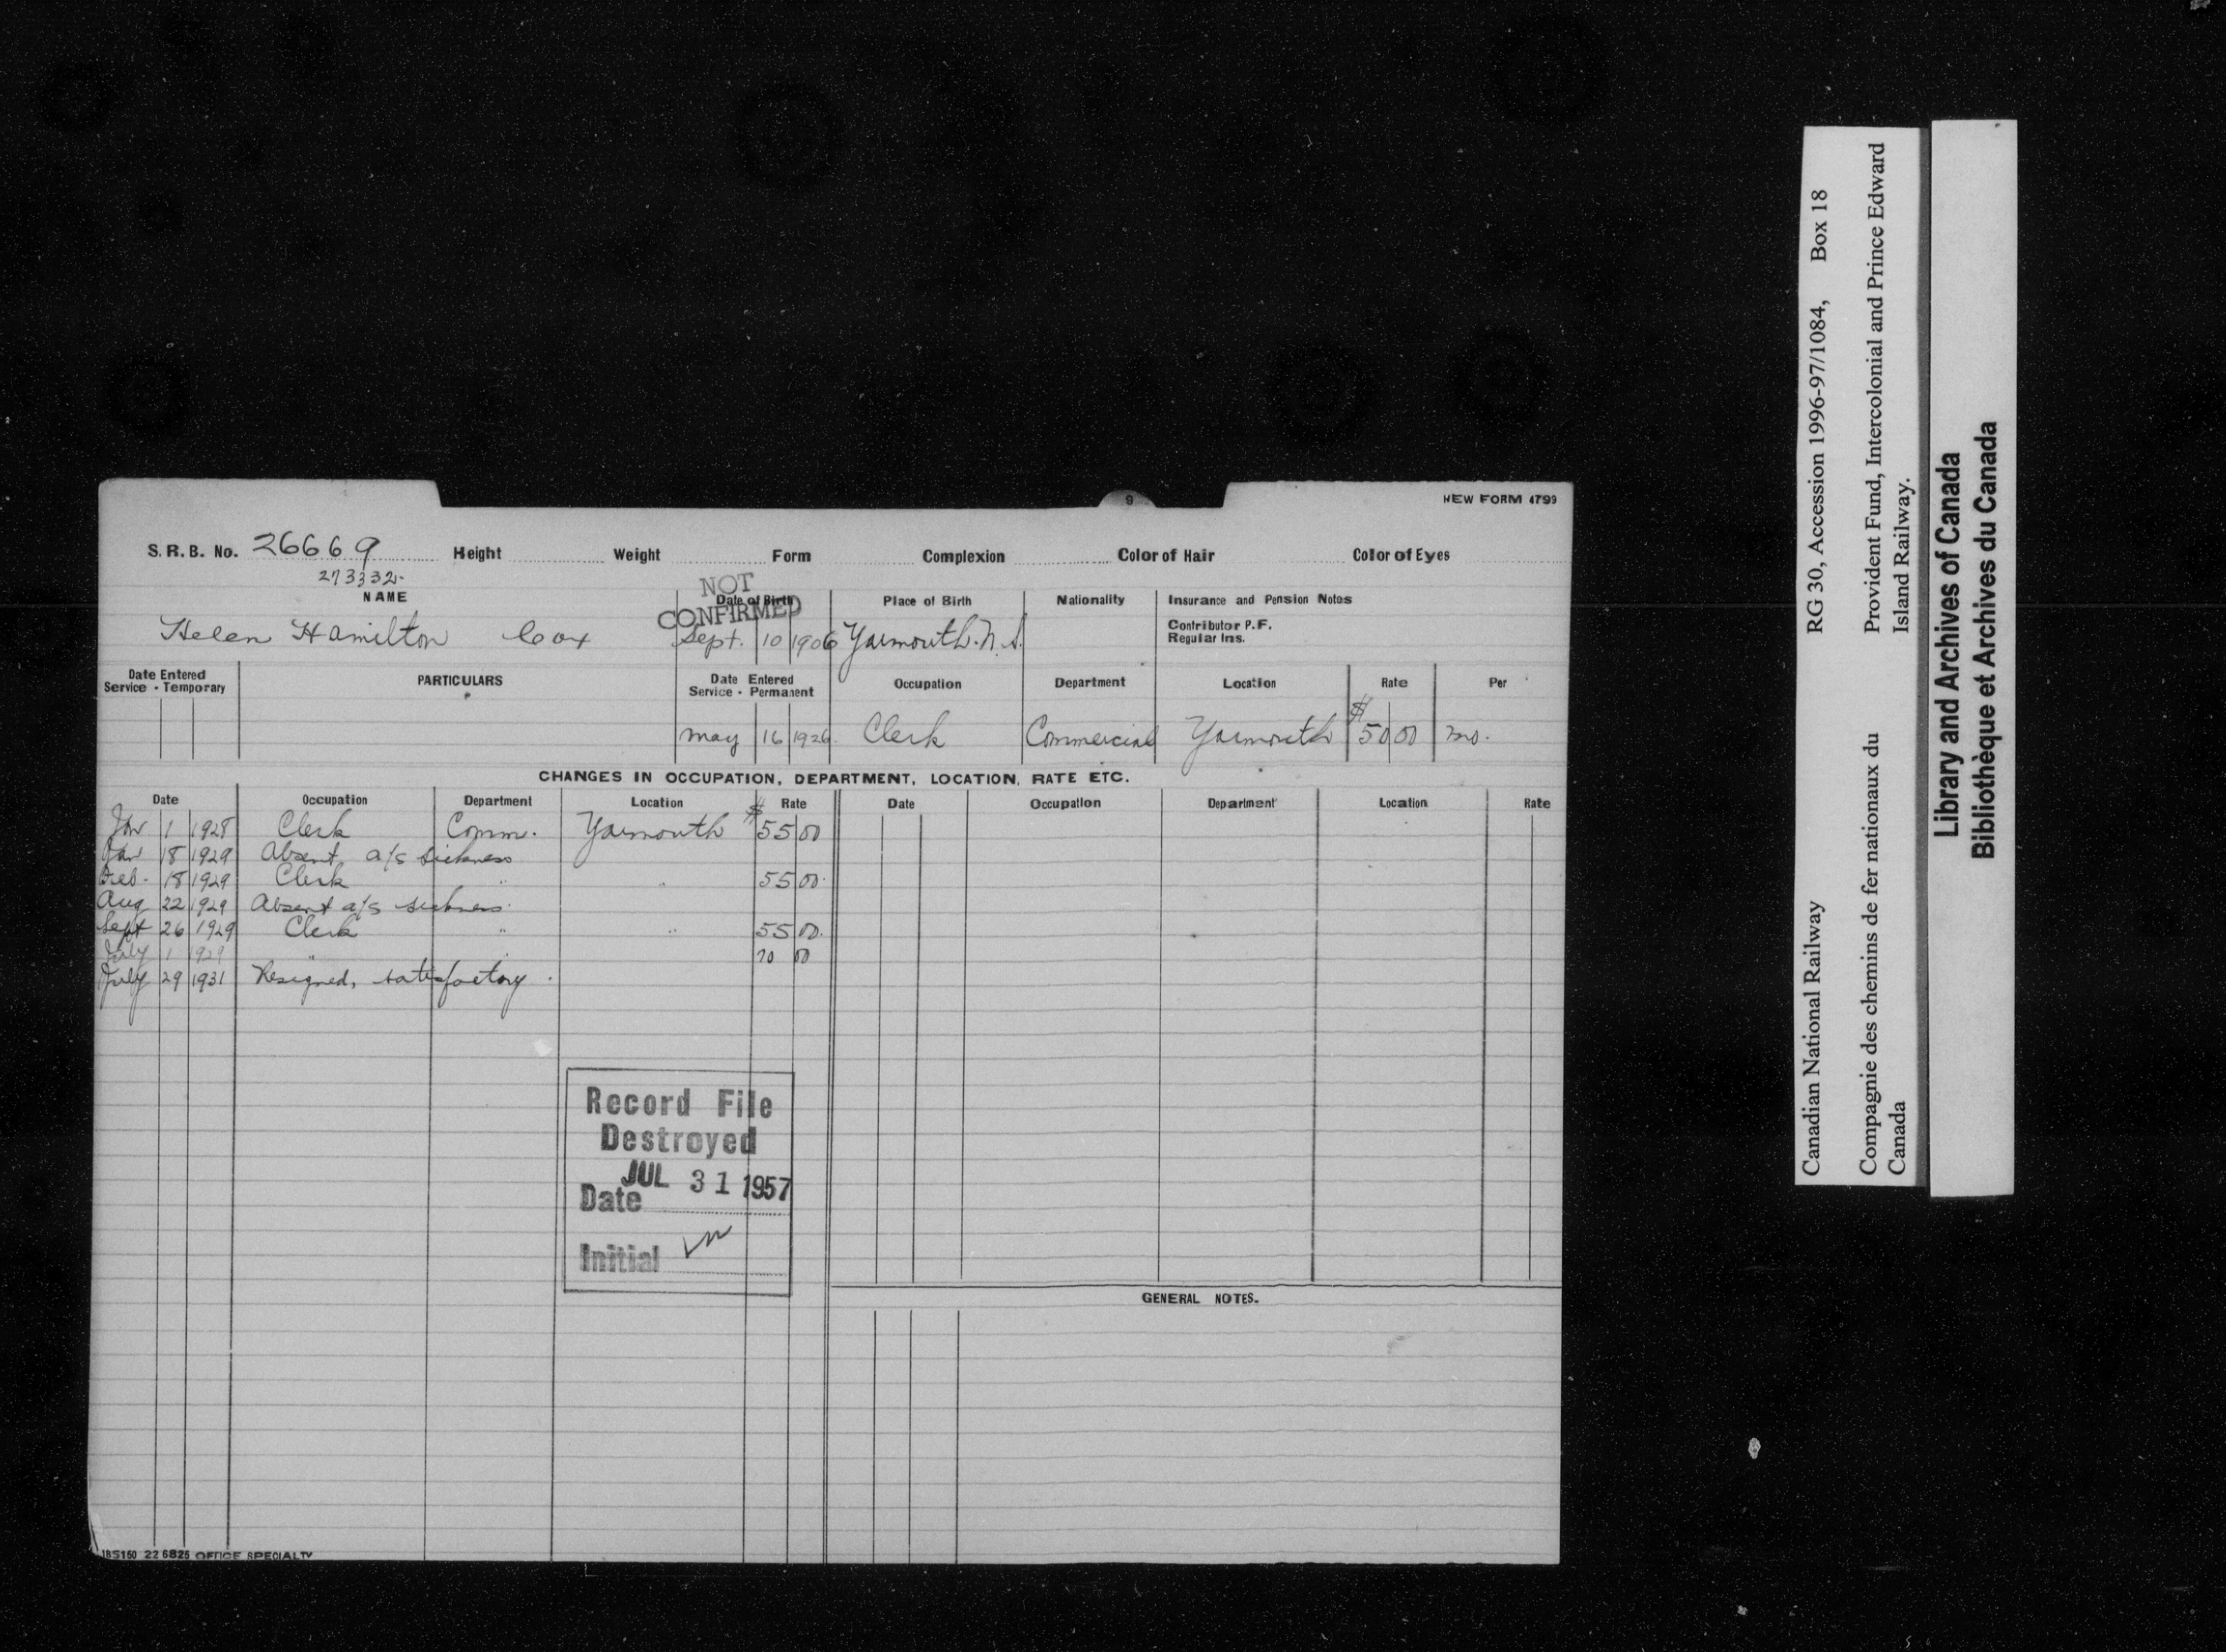 9
NEW FORM 4799
S. R. B. No. 26669 Height Weight Form Complexion Color of Hair Color of Eyes
273332-
NOT CONFIRMED
NAME Date of Birth Place of Birth Nationality Insurance and Pension Notes
Contributor P.F.
Regular Ins.
Helen Hamilton Cox Sept. 10 1906 Yarmouth. N.S.
Date Entered Service - Temporary PARTICULARS Date Entered Service - Permanent Occupation Department Location Rate Per
May 16 1926. Clerk Commercial Yarmouth $ 50 00 mo.
CHANGES IN OCCUPATION, DEPARTMENT, LOCATION, RATE ETC.
Date Occupation Department Location Rate Date Occupation Department Location Rate
Jan 1 1928 Clerk Comm. Yarmouth $ 55 00
Jan 18 1929 Absent a/s sickness
Feb. 18 1929 Clerk " " 55 00.
Aug 22 1929 Absent a/s sickness.
Sept 26 1929 Clerk " " 55 00.
July 1 1929 " 70 00
July 29 1931 Resigned, satisfactory.
Record File
Destroyed
Date JUL 31 1957
Initial
GENERAL NOTES.
185150 22 6825 OFFICE SPECIALTY
Canadian National Railway RG 30, Accession 1996-97/1084, Box 18
Compagnie des chemins de fer nationaux du Provident Fund, Intercolonial and Prince Edward
Canada Island Railway.
Library and Archives of Canada
Bibliothèque et Archives du Canada